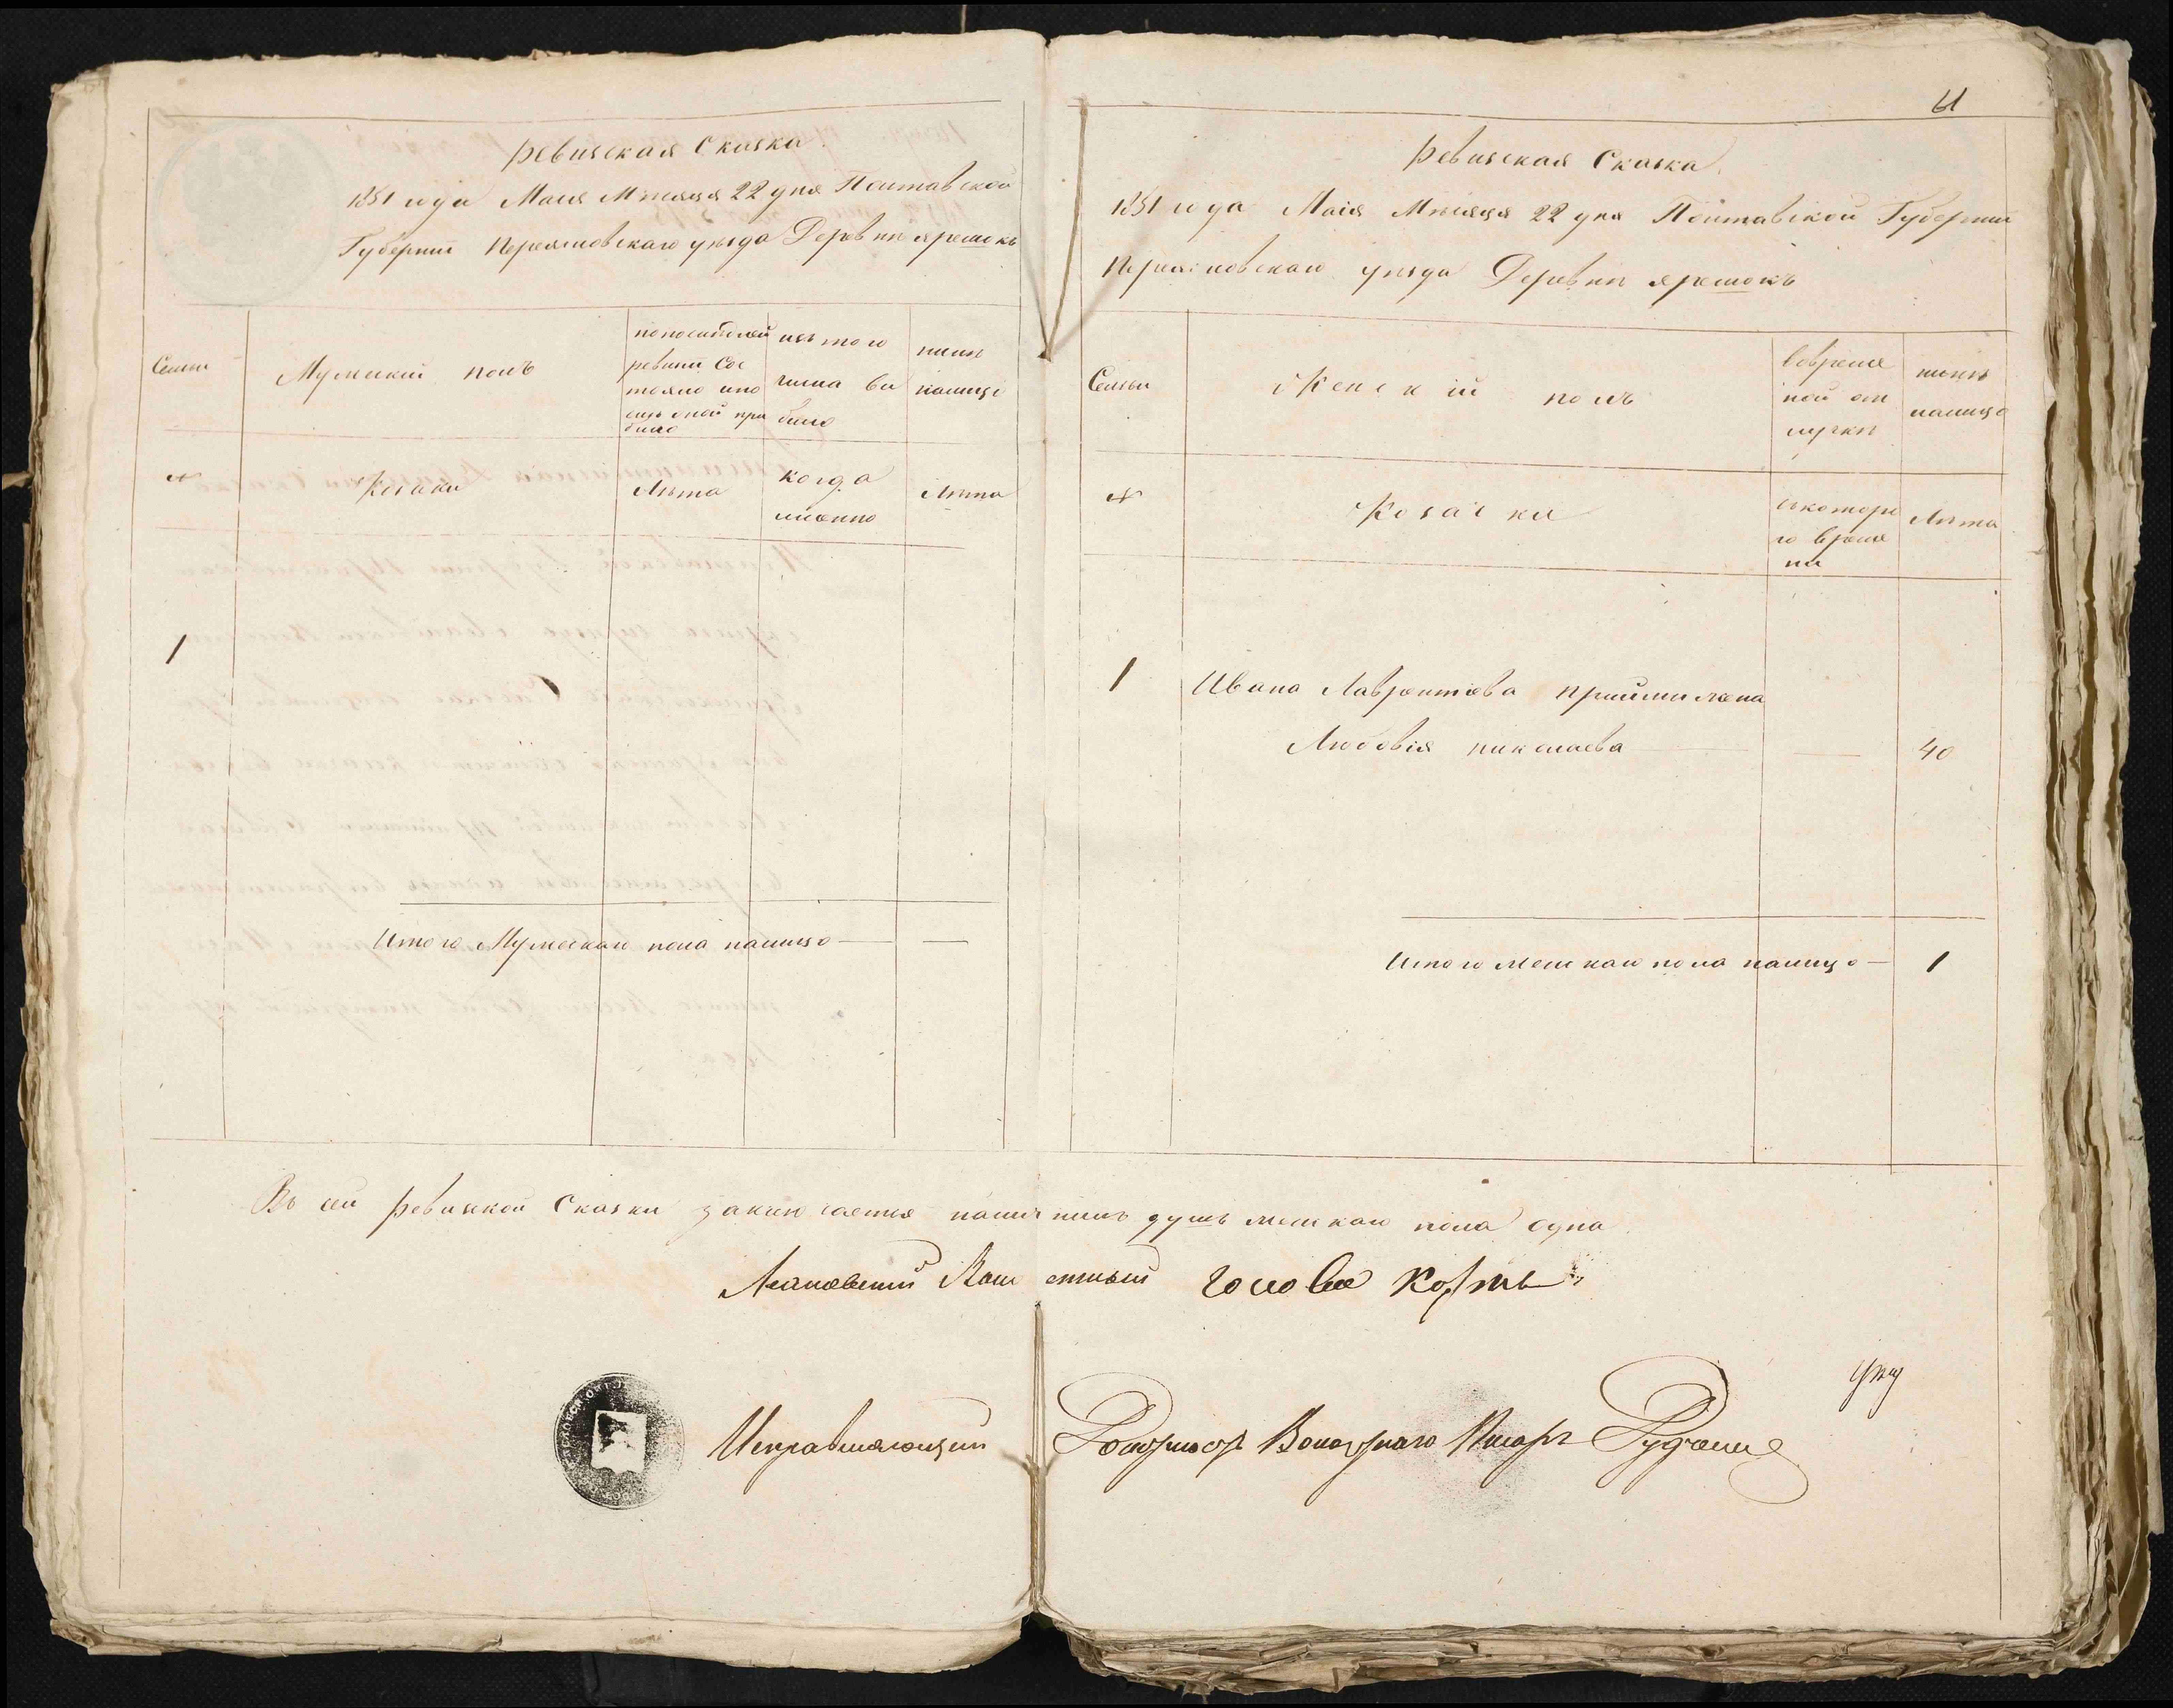 Ревизская Сказка
1851 года Маия Мѣсяца 22 дня Полтавской
Губернии Переяславскаго уѣзда Деревни Ярешокъ
Семьи
Мужеский полъ
по последней
ревизии Сос
тояло и по
слѣ оной при
было
изъ того
числа вы
было
нынѣ
налицо
№
Козаки
Лѣта
когда
именно
Лѣта
1
Итого Мужескаго пола налицо — —
61
Ревизская Сказка
1851 года Маія Мѣсяца 22 дня Полтавской Губернии
Переяславскаго уѣзда Деревни Ярешокъ
Семьи
Женскій полъ
во време
нной от
лучкѣ
нынѣ
налицо
№
Козачки
съ которо
го време
ни
Лѣта
1 Ивана Лаврентиева Приймы жена
Любовія николаева — 40
Итого женскаго пола налицо — 1
Въ сей Ревизской Сказки заключается наличныхъ душъ женскаго пола одна
голова
Исправляющий Волостнаго Писаря